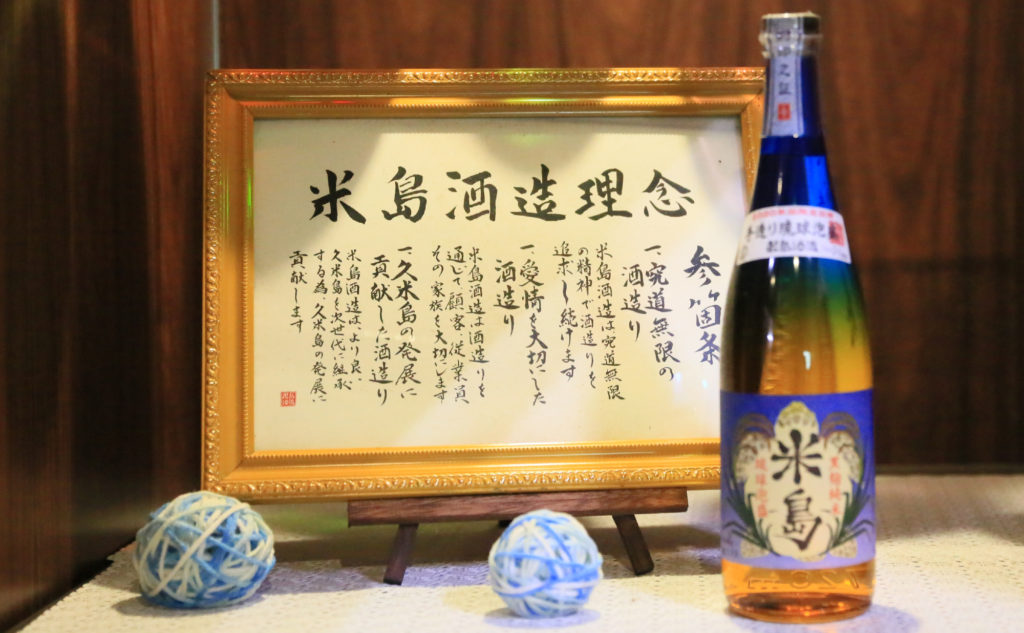 米島酒造理念
参箇条
一.究道無限の
酒造り
米島酒造は究道無限
の精神で酒造りを
追求し続けます
一.愛情を大切にした
酒造り
米島酒造は酒造りを
通じて顧客、従業員
その家族を大切にします
一.久米島の発展に
貢献した酒造り
米島酒造は、より良い
久米島を次世代に継承
する為、久米島の発展に
貢献します
之証
手造り琉球泡盛
米島酒造
黒麹純米
米島
琉球泡盛